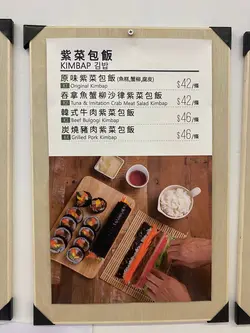 紫菜包飯
KIMBAP 김밥
原味紫菜包飯 (魚糕,蟹柳,腐皮) $42/條
K1 Original Kimbap
吞拿魚蟹柳沙律紫菜包飯 $42/條
K2 Tuna & Imitation Crab Meat Salad Kimbap
韓式牛肉紫菜包飯 $46/條
K3 Beef Bulgogi Kimbap
炭燒豬肉紫菜包飯 $46/條
K4 Grilled Pork Kimbap